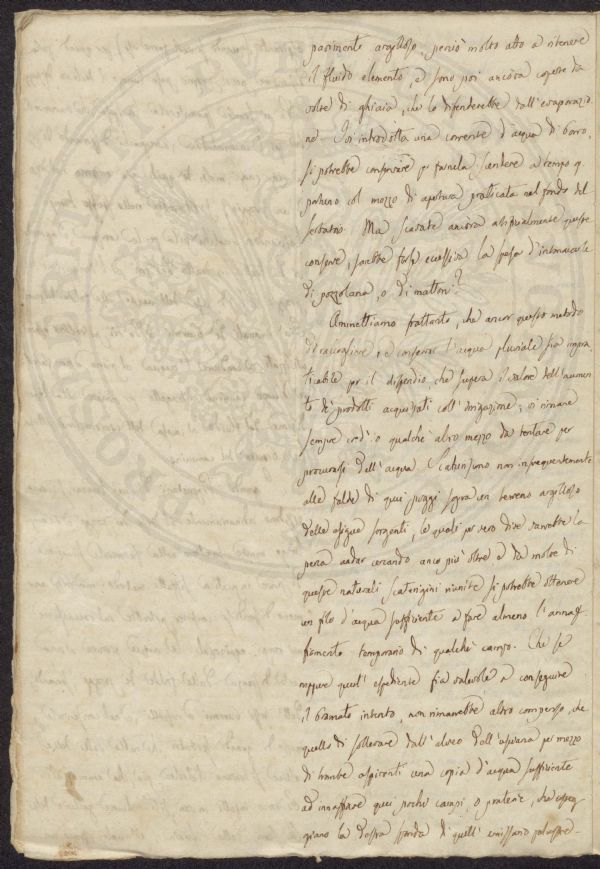 pavimento argilloso, perciò molto atto a ritenere
il fluido elemento, e sono poi ancora coperte da
volte di ghiaia, che lo difenderebbe dall'evaporazio
ne. Ivi introdotta una corrente d'acqua di Borro,
si potrebbe conservare per farnela scendere a tempo op
portuno col mezzo di apertura praticata nel fondo del
serbatoio. Ma scavate ancora artificialmente queste
conserve, sarebbe forse eccessiva la spesa d'intonacarle
di pozzolana, o di mattoni?
Ammettiamo frattanto, che ancor questo metodo
di raccogliere, e conservar l'acqua pluviale sia impra
ticabile per il dispendio, che supera il valore dell'aumen
to de' prodotti acquistati coll'irrigazione; vi rimane
sempre credo qualche altro mezzo da tentare per
procurarsi dell'acqua. Scaturiscono non infrequentemente
alle falde di quei poggi sopra un terreno argilloso
delle esigue sorgenti, le quali per vero dire sarebbe la
pena andar cercando anco più oltre e da molte di
queste naturali scaturigini riunite si potrebbe ottenere
un filo d'acqua sufficiente a fare almeno l'annaf
fiamento temporario di qualche campo. Che se
neppure quest'espediente sia valevole a conseguire
il bramato intento, non rimarrebbe altro compenso, che
quello di sollevare dall'alveo dell' per mezzo
di trombe aspiranti una copia d'acqua sufficiente
ad innaffiare quei pochi campi, o praterie, che costeg
giano la destra sponda di quell'emissario palustre.